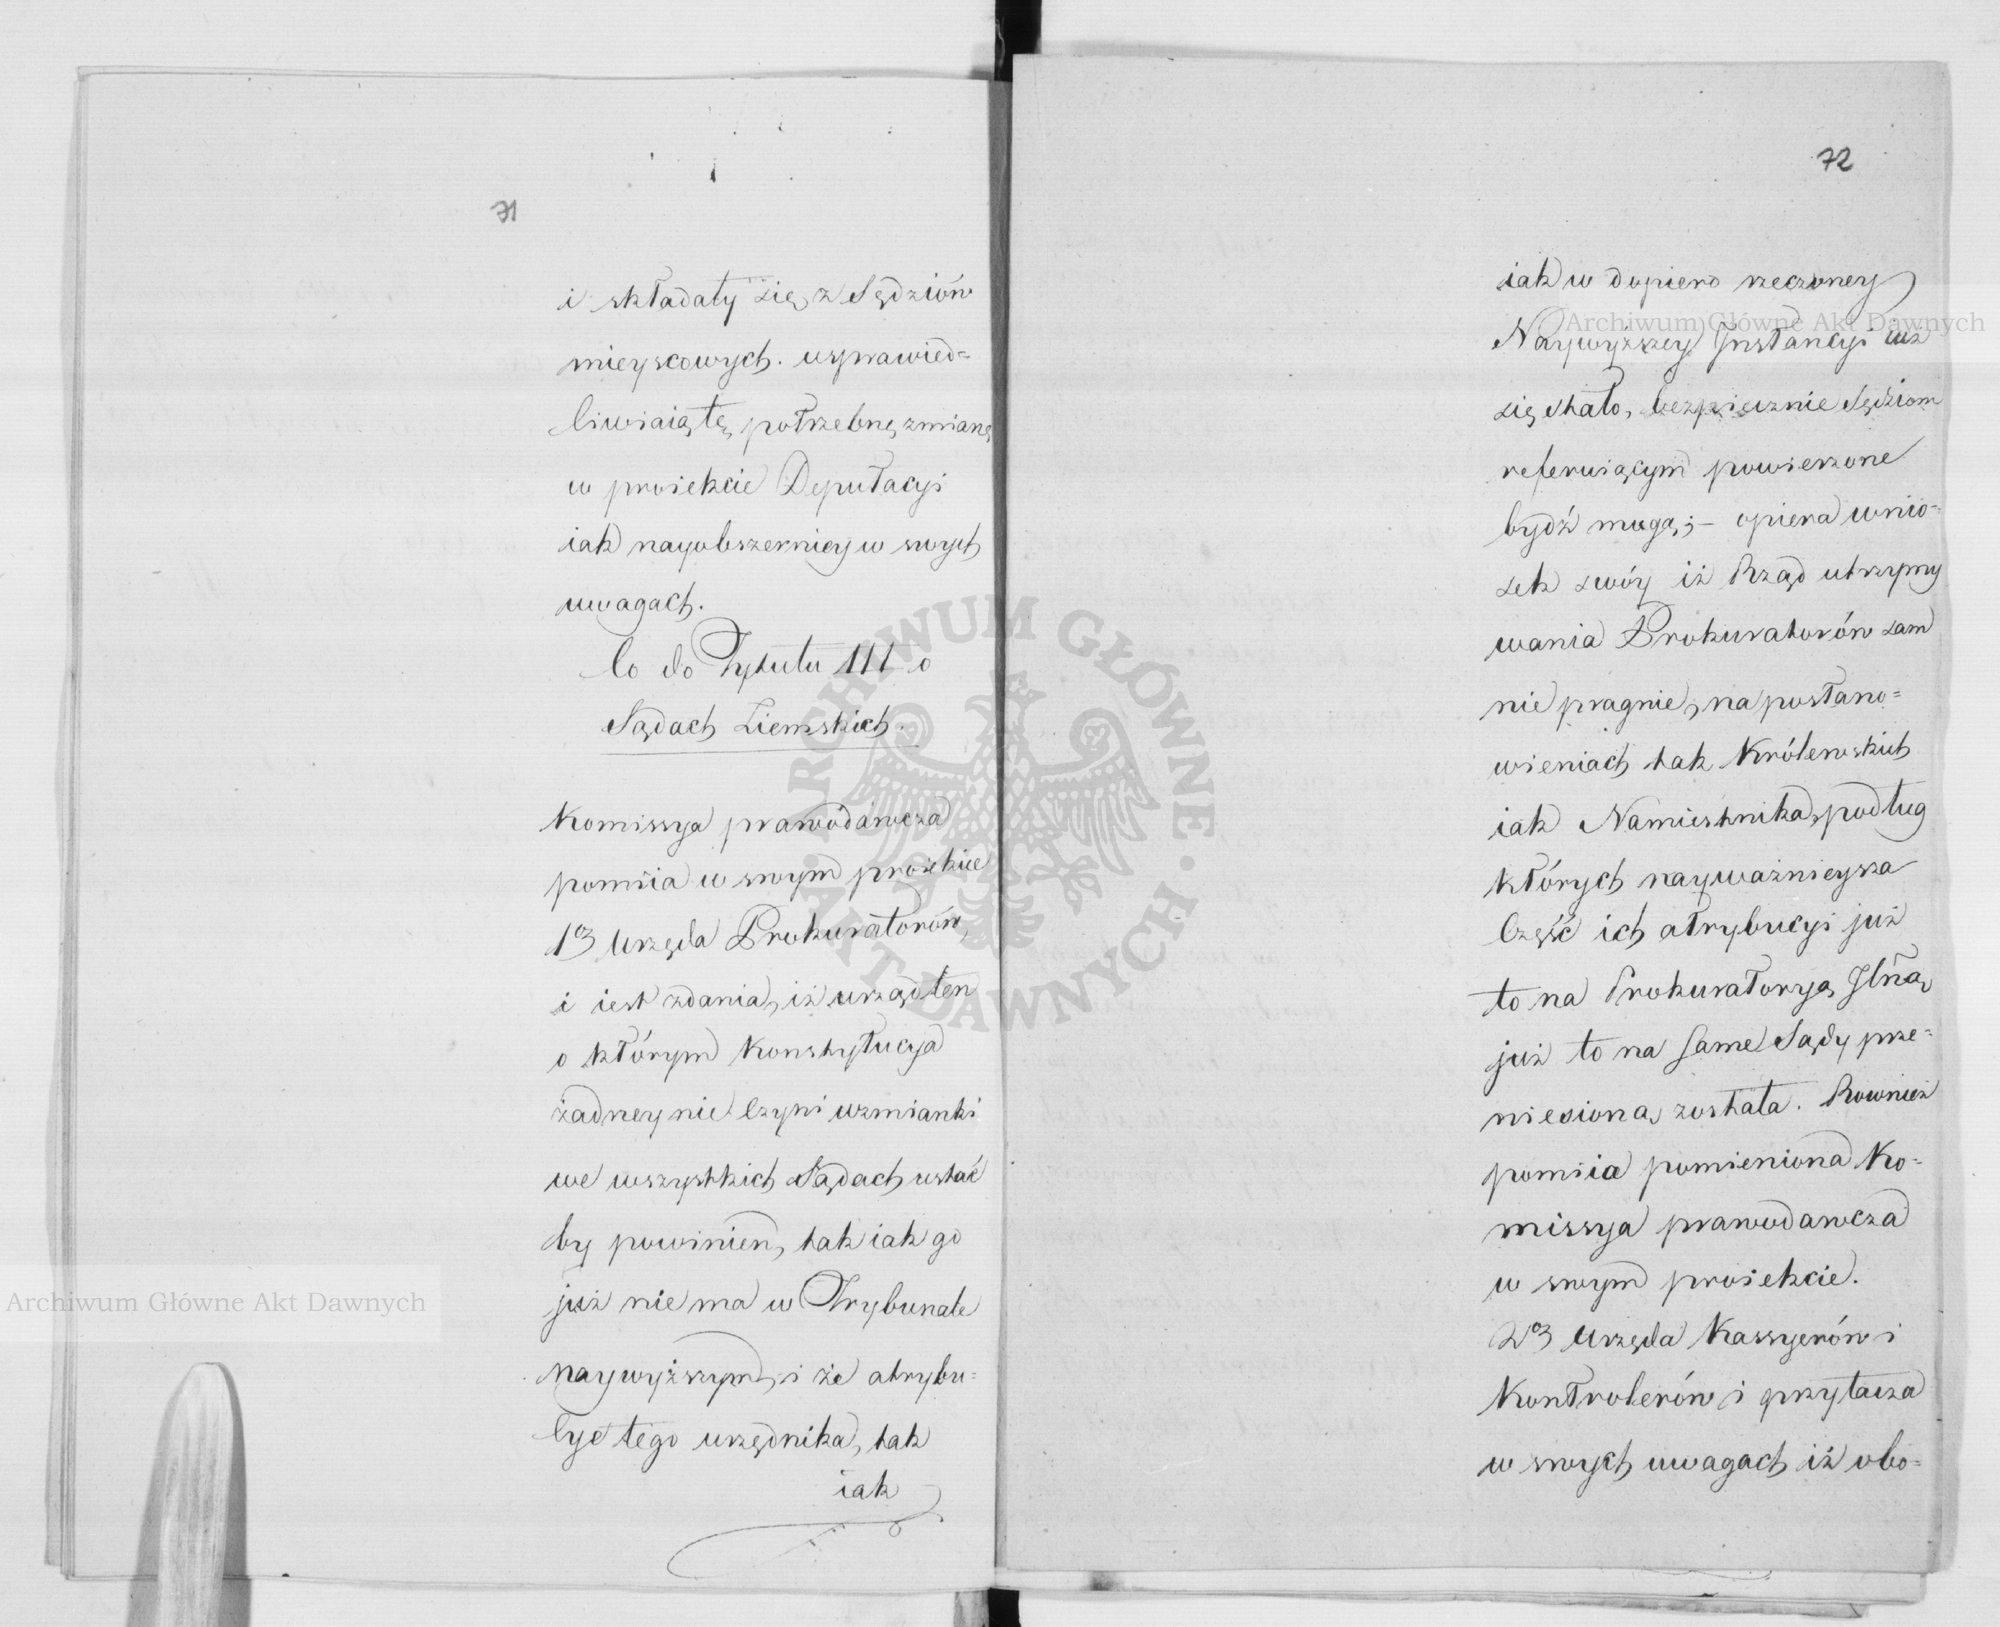 71
i składały się z Sędziów
mieyscowych. usprawied=
liwiaiątę potrzebnę zmianę
w proiekcie Deputacyi
iak nayobszerniey w swych
uwagach.
Co do Tytułu III o
Sądach Ziemskich.
Kommissya prawodawcza
pomiia w swym proiekcie
1o3 Urzęda Prokuratorów,
i iest zdania, iż urząd ten
o którym Konstytucya
żadney nie czyni wzmianki
we wszystkich Sądach ustać
by powinien, tak iak go
już nie ma w Trybunale
naywyższym, i że atrybu=
cye tego urzędnika, tak
iak
72
iak w dopiero rzeczoney
Naywyższey Instancyi już
się stało, bezpiecznie Sędziom
referuiącym powierzone
bydź mogą; – opiera wnio=
sek swóy iż Rząd utrzymy
wania Prokuratorów sam
nie pragnie, na postano=
wieniach tak Królewskich
iak Namiestnika, podług
których nayważnieysza
Część ich atrybucyi już
to na Prokuratoryą Jlną,
już to na same Sądy prze=
niesioną została. Rownież
pomiia pomieniona Ko=
missya prawodawcza
w swym proiekcie.
2o3 Urzęda Kassyerów i
Kontrolerów i przytacza
w swych uwagach iż obo=
Archiwum Główne Akt Dawnych
Archiwum Główne Akt Dawnych
ARCHIWUM GŁÓWNE AKT DAWNYCH